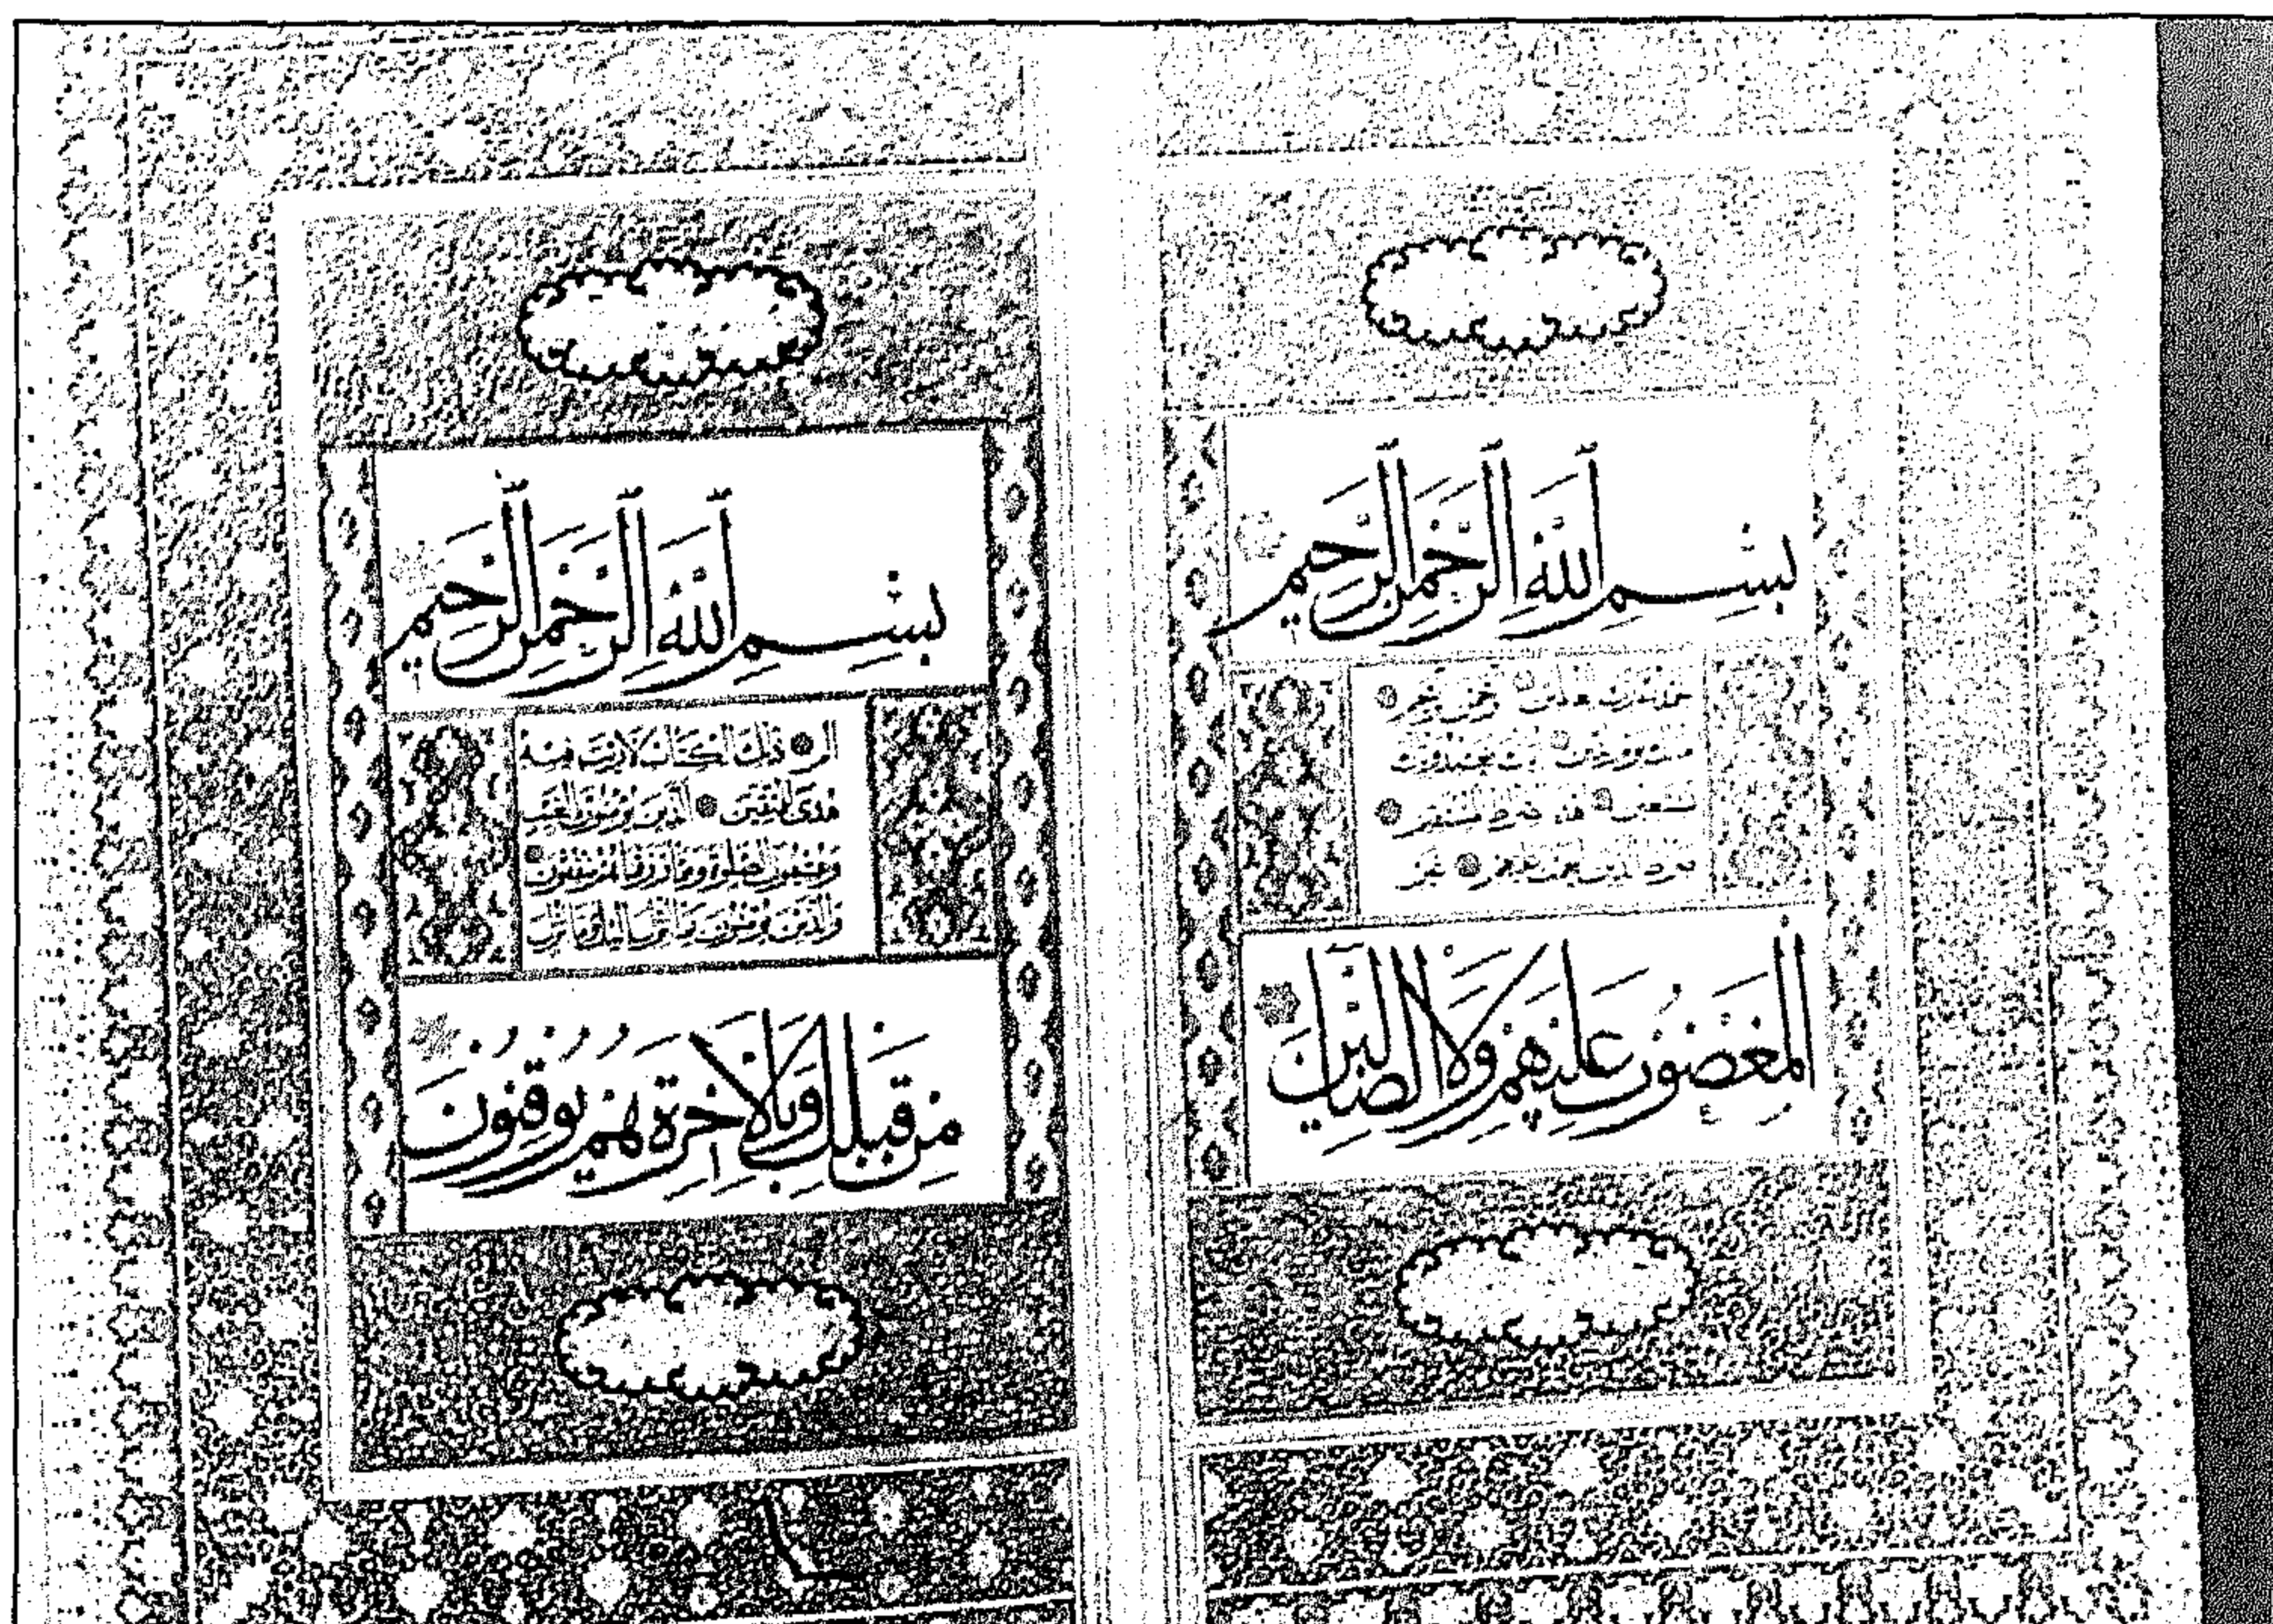 بِسْمِ اللَّهِ الرَّحْمَنِ الرَّحِيمِ
الرحمن الرحيم
نستعين اهدنا الصراط المستقيم
صراط الذين انعمت عليهم غير
الْمَغْضُوبِ عَلَيْهِمْ وَلَا الضَّالِّينَ
بِسْمِ اللَّهِ الرَّحْمَنِ الرَّحِيمِ
الم ذلك الكتاب لا ريب فيه
هدى للمتقين الذين يؤمنون بالغيب
ويقيمون الصلوة ومما رزقناهم ينفقون
والذين يؤمنون بما انزل اليك وما انزل
مِنْ قَبْلِكَ وَبِالْآخِرَةِ هُمْ يُوقِنُونَ